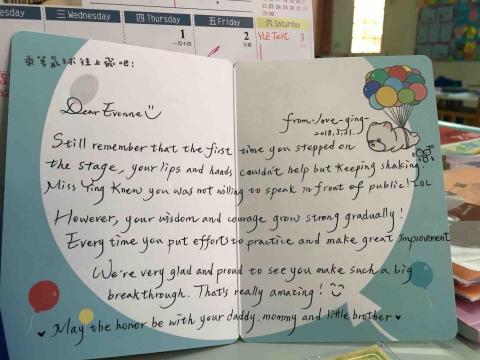 esday
三 Wednesday
四 Thursday
五 Friday
六 Saturday
1
一四十
2
元
YLE Test
3
乘著氣球往上飛吧:
Dear Evonne
from. love-ying-
2018.5.31.
Still remember that the first time you stepped on
the stage, your lips and hands couldn't help but keeping shaking.
Miss Ying Knew you was not willing to speak in front of public! LOL
However, your wisdom and courage grow strong gradually!
Every time you put efforts to practice and make great improvement
We're very glad and proud to see you make such a big
breakthrough. That's really amazing!
May the honor be with your daddy, mommy and little brother